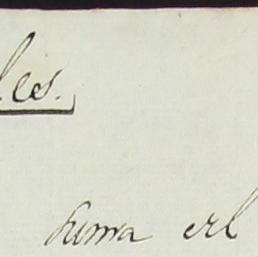 les.
suma erl